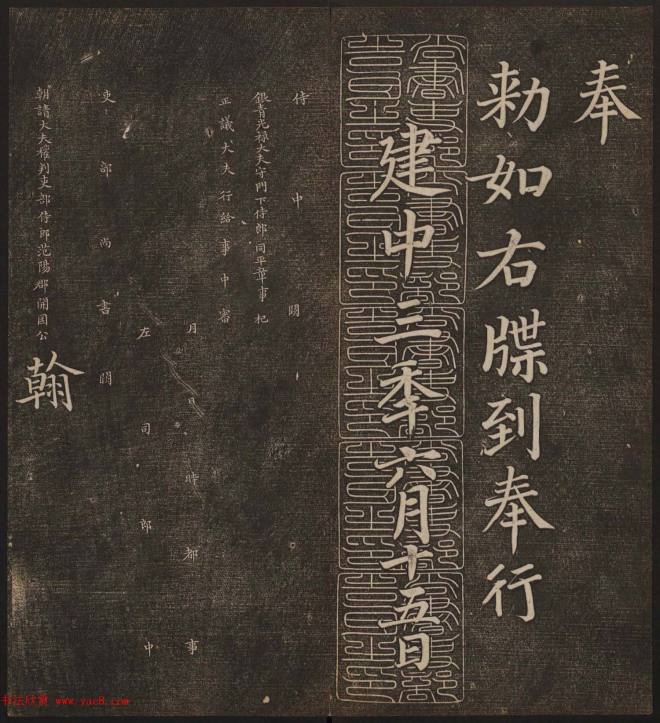 奉
勑如右牒到奉行
建中三年六月十五日
侍中 明
銀青光祿大夫守門下侍郎同平章事 杞
正議大夫行給事中審
月日時都事
左司郎中
吏部尚書 明
朝請大夫權判吏部侍郎范陽郡開國公
翰
书法欣赏 www.yac8.com